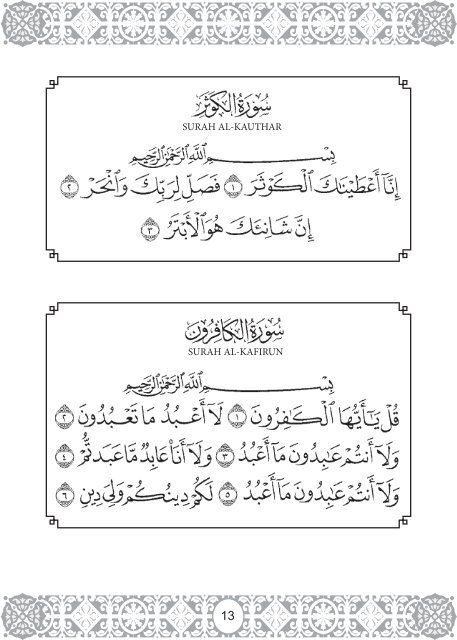 سُورَةُ الكَوْثَرِ
SURAH AL-KAUTHAR
بِسْمِ ٱللَّهِ ٱلرَّحْمَٰنِ ٱلرَّحِيمِ
إِنَّآ أَعْطَيْنَٰكَ ٱلْكَوْثَرَ ١ فَصَلِّ لِرَبِّكَ وَٱنْحَرْ ٢
إِنَّ شَانِئَكَ هُوَ ٱلْأَبْتَرُ ٣
سُورَةُ الكَافِرُونَ
SURAH AL-KAFIRUN
بِسْمِ ٱللَّهِ ٱلرَّحْمَٰنِ ٱلرَّحِيمِ
قُلْ يَٰٓأَيُّهَا ٱلْكَٰفِرُونَ ١ لَآ أَعْبُدُ مَا تَعْبُدُونَ ٢
وَلَآ أَنتُمْ عَٰبِدُونَ مَآ أَعْبُدُ ٣ وَلَآ أَنَا۠ عَابِدٌ مَّا عَبَدتُّمْ ٤
وَلَآ أَنتُمْ عَٰبِدُونَ مَآ أَعْبُدُ ٥ لَكُمْ دِينُكُمْ وَلِىَ دِينِ ٦
13